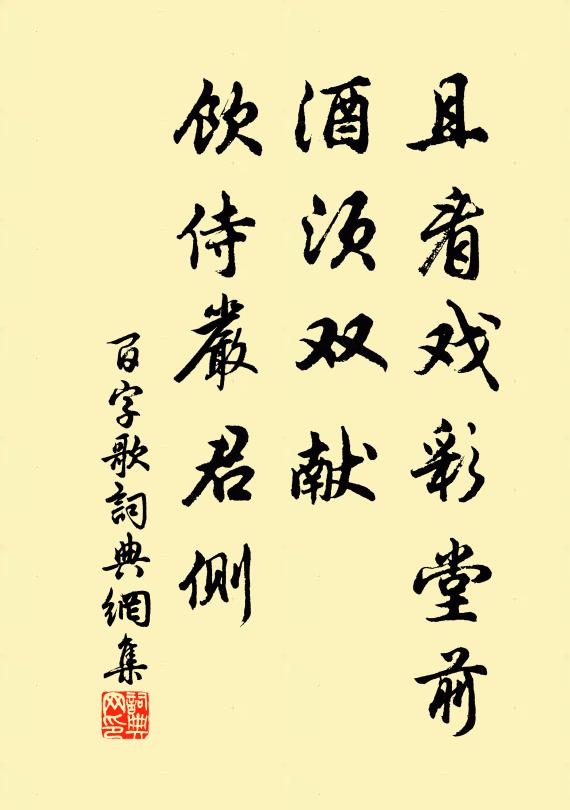 且看戏彩堂前
酒须双献
饮侍嚴君侧
百字歌詞典網集
詞典网印